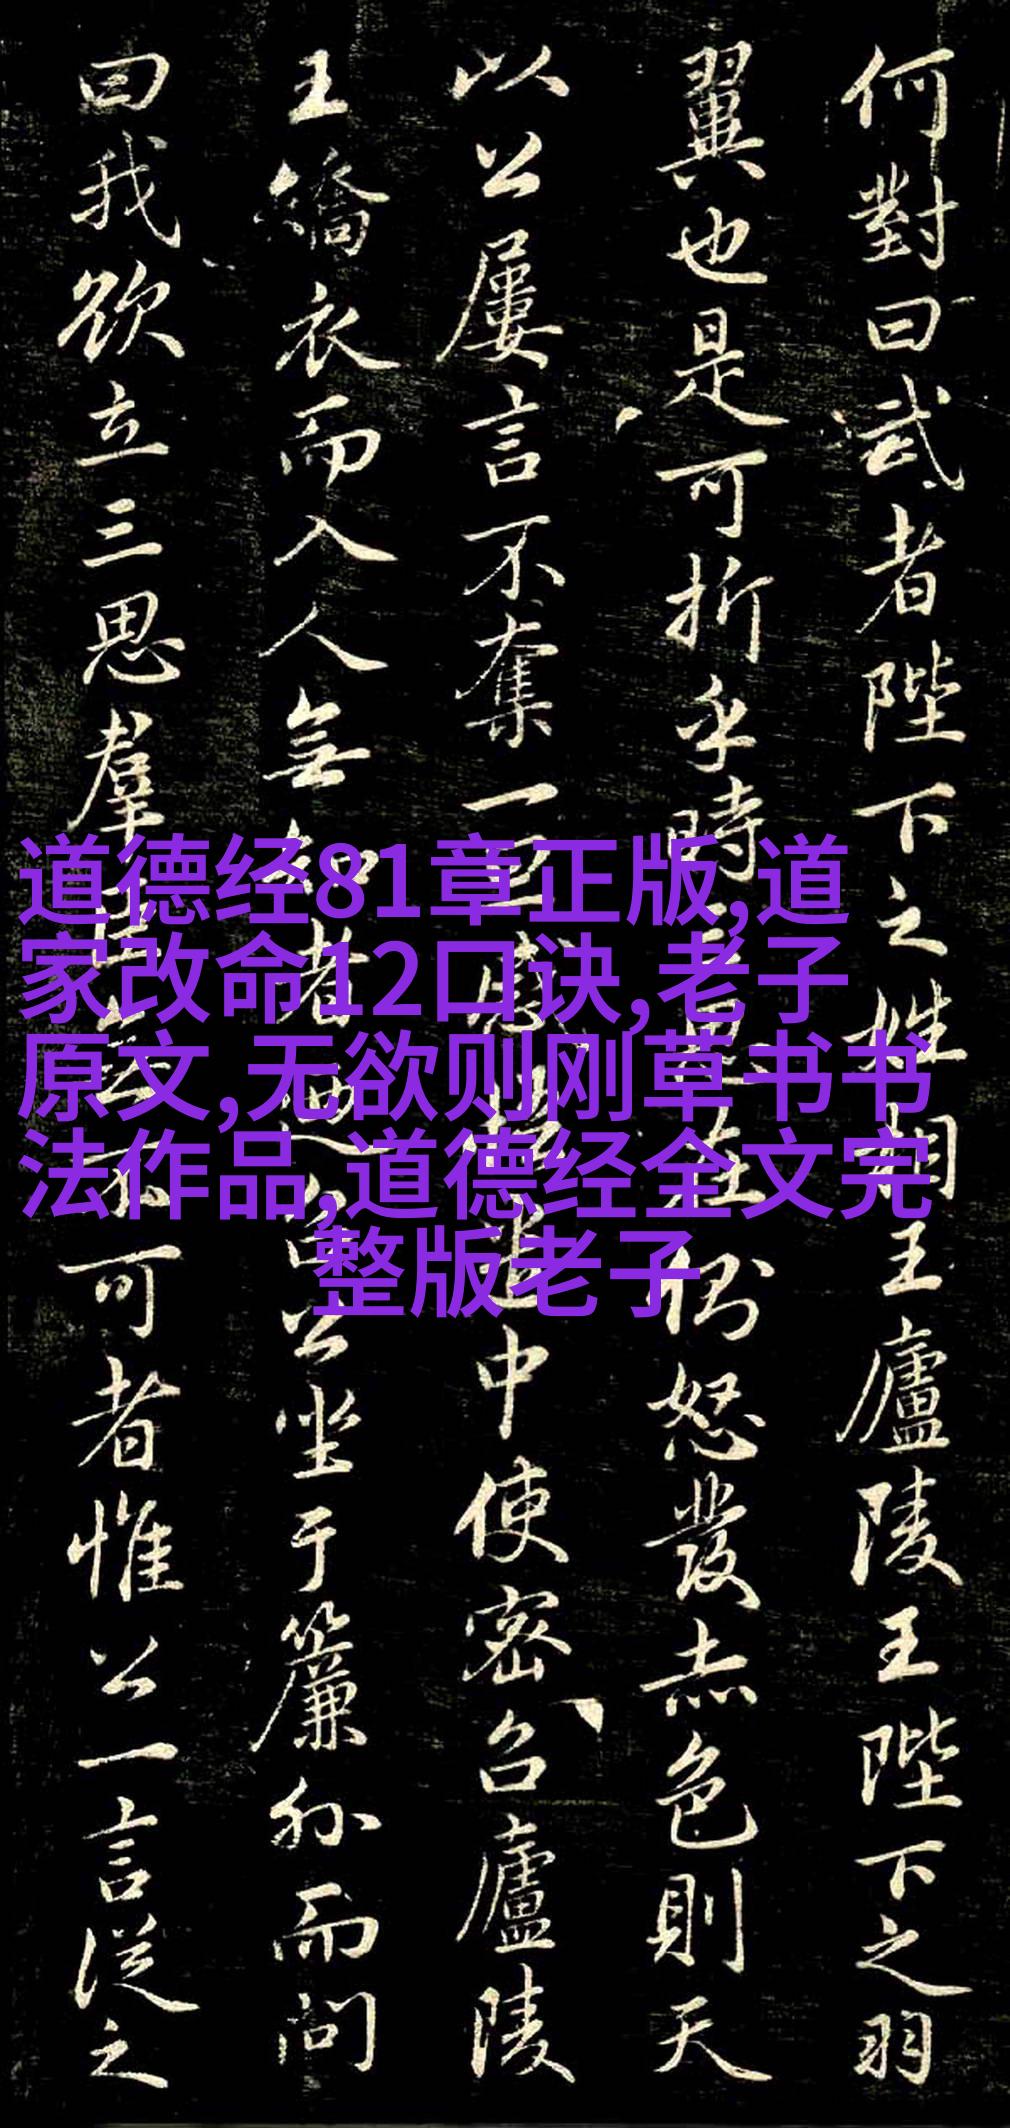 何對曰武者陛下之姓相王廬陵王陛下之羽
翼也是可折乎時三思在側怒發赤色則天
以公屢言不奪一旦感悟遣中使密召廬陵
王矯衣而入人無知者召公坐于簾外而問
曰我欲立三思羣臣無不可者惟公一言從之
道德经81章正版,道
家改命12口诀,老子
原文,无欲则刚草书书
法作品,道德经全文完
整版老子